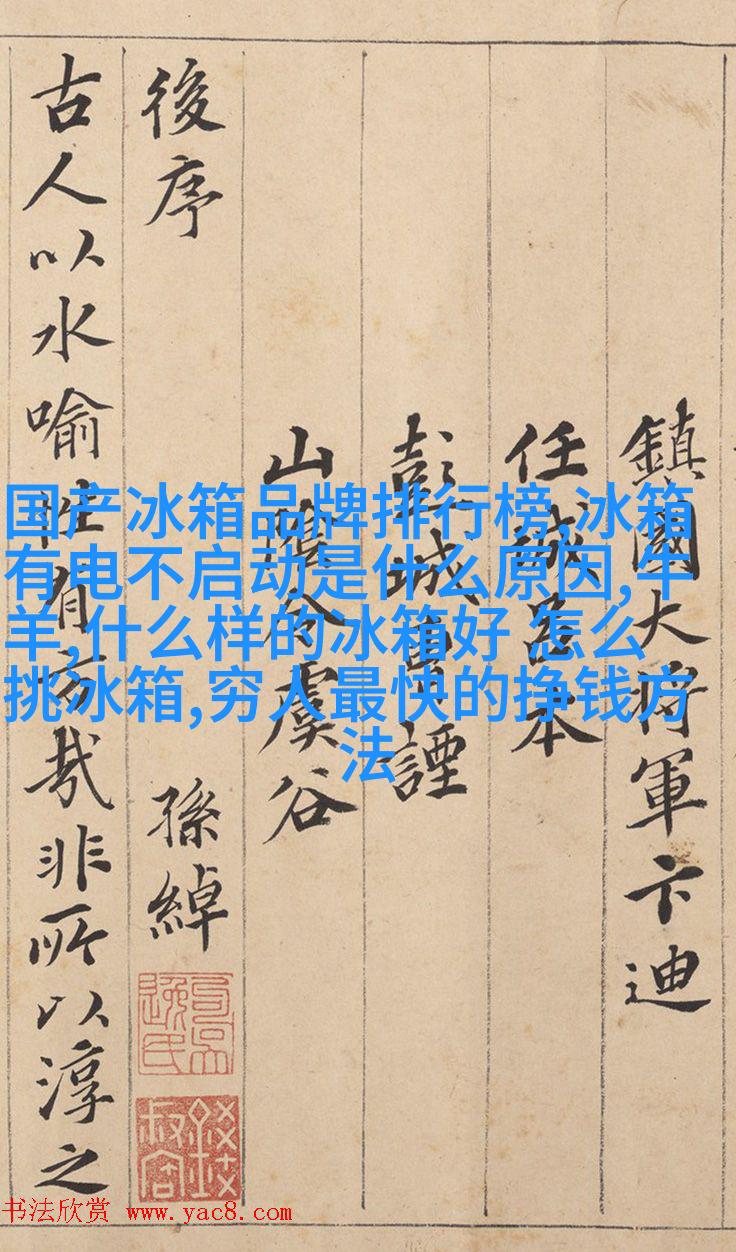 鎮國大將軍卞迪
任城呂本
彭城曹諲
山陰令虞谷
後序 孫綽
古人以水喻性有哉非所以淳之
国产冰箱品牌排行榜,冰箱
有电不启动是什么原因,牛
羊,什么样的冰箱好 怎么
挑冰箱,穷人最快的挣钱方
法
书法欣赏 www.yac8.com